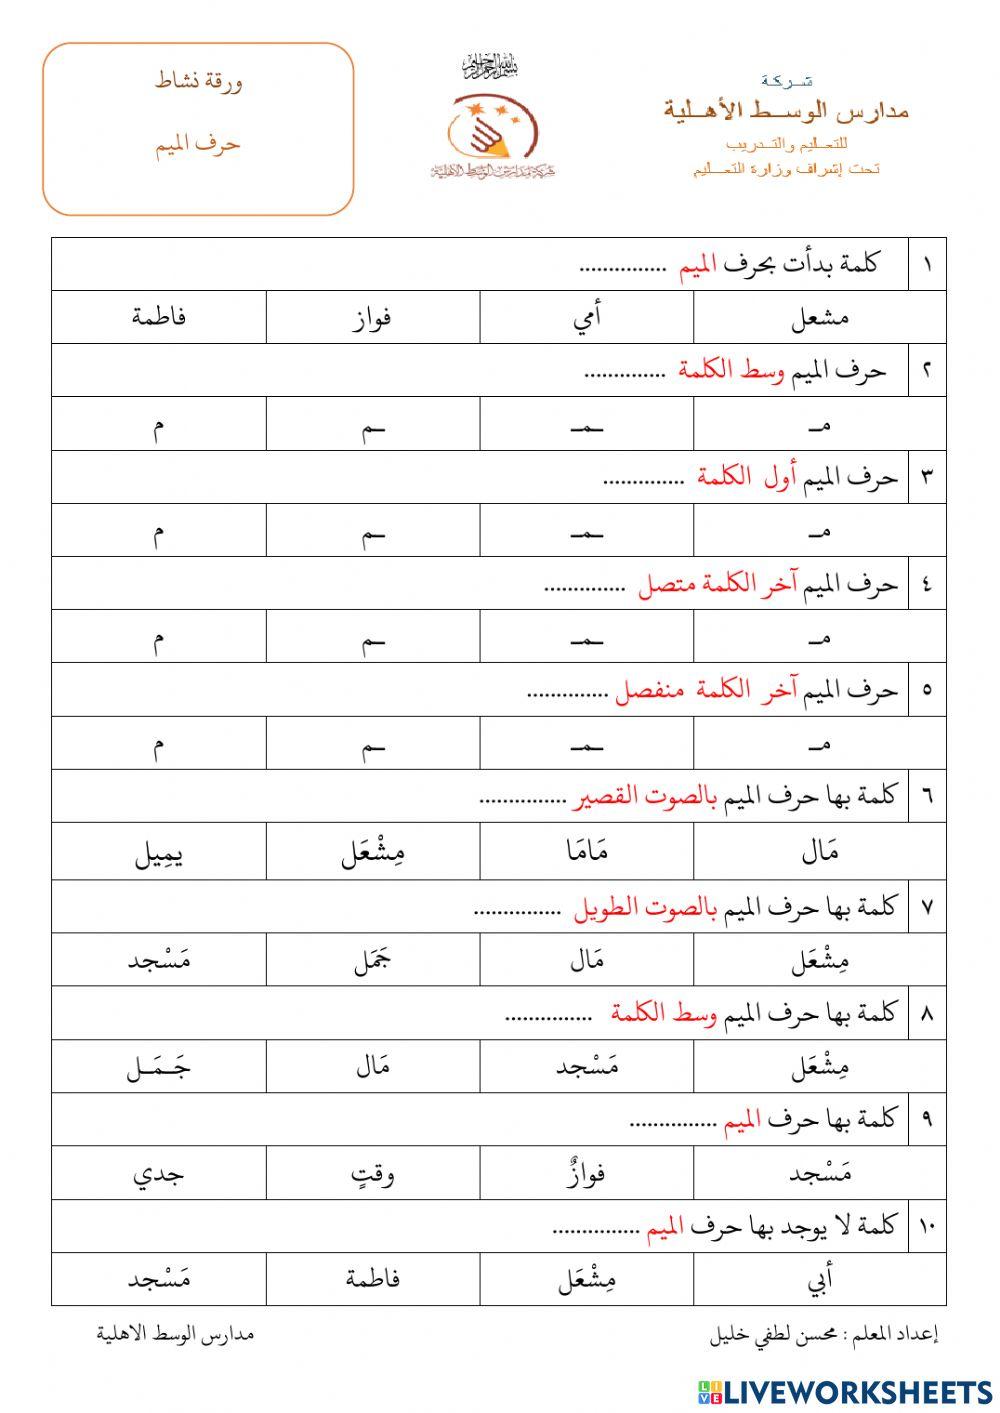 شركة
مدارس الوسط الأهلية
للتعليم والتدريب
تحت إشراف وزارة التعليم
بسم الله الرحمن الرحيم
شركة مدارس الوسط الأهلية
ورقة نشاط
حرف الميم
١ كلمة بدأت بحرف الميم ...............
مشعل أمي فواز فاطمة
٢ حرف الميم وسط الكلمة ..............
مـ ـمـ ـم م
٣ حرف الميم أول الكلمة ..............
مـ ـمـ ـم م
٤ حرف الميم آخر الكلمة متصل ..............
مـ ـمـ ـم م
٥ حرف الميم آخر الكلمة منفصل ..............
مـ ـمـ ـم م
٦ كلمة بها حرف الميم بالصوت القصير ...............
مَال مَامَا مِشْعَل يمِيل
٧ كلمة بها حرف الميم بالصوت الطويل ...............
مِشْعَل مَال جَمَل مَسْجد
٨ كلمة بها حرف الميم وسط الكلمة ...............
مِشْعَل مَسْجد مَال جَـمَـل
٩ كلمة بها حرف الميم ...............
مَسْجد فوازٌ وقتٍ جدي
١٠ كلمة لا يوجد بها حرف الميم ...............
أبي مِشْعَل فاطمة مَسْجد
إعداد المعلم : محسن لطفي خليل مدارس الوسط الاهلية
LIVE LIVEWORKSHEETS